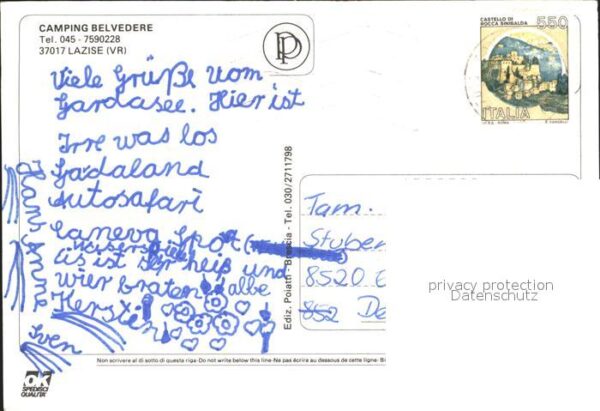 CAMPING BELVEDERE
Tel. 045 - 7590228
37017 LAZISE (VR)
CASTELLO DI
ROCCA SINIBALDA
550
ITALIA
I.P.Z.S. ROMA
Viele Grüße vom
Gardasee. Hier ist
Irre was los
Gardaland
Autosafari
Caneva Sport
Wasserspiele
Es ist sehr heiß und
wier braten
Kerstin
Hans Anne
Sven
Ediz. Poiatti - Brescia - Tel. 030/2711798
Fam.
Stuber
8520 E
852 De
privacy protection
Datenschutz
Non scrivere al di sotto di questa riga-Do not write below this line-Ne pas écrire au dessous de cette ligne-
OK
SPEDISCI
QUALITA'